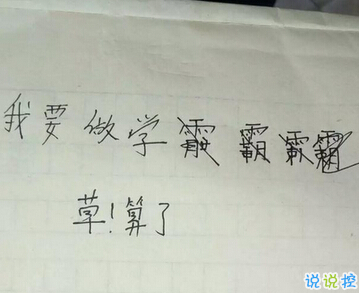 我要做学霸
草！算了
说说控